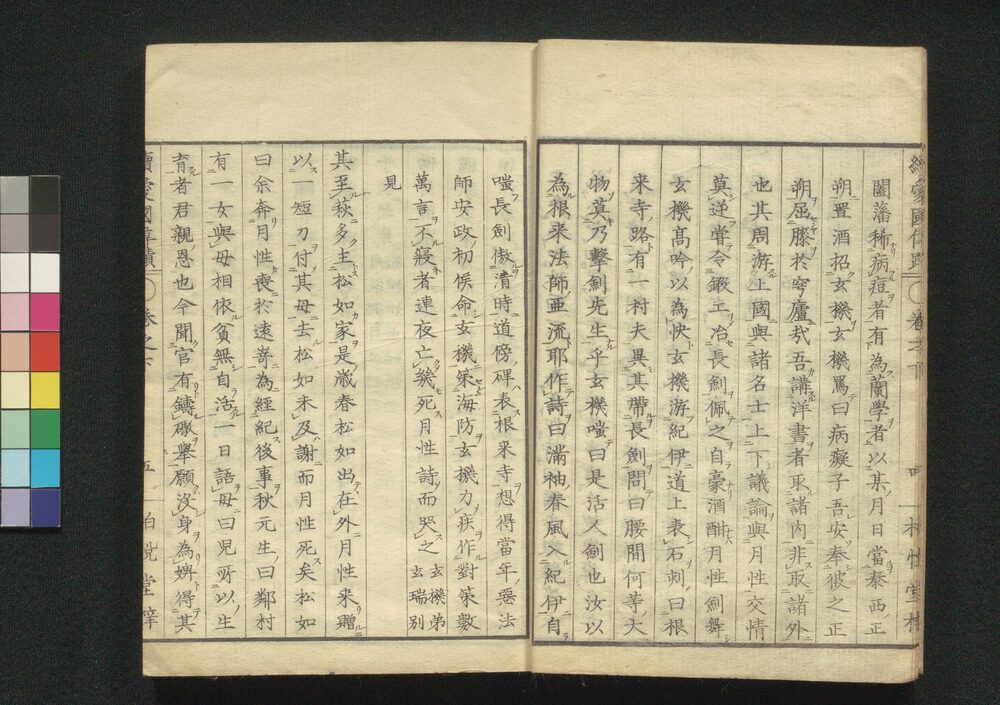 闔藩稀病痘者有為蘭學者以某月日當泰西正
朔置酒招玄機玄機罵曰病癡子吾安奉彼之正
朔屈膝於穹廬哉吾講洋書者取諸内非取諸外
也其周游上國與諸名士上下議論與月性交情
莫逆嘗令鍛工冶長劍佩之自豪酒酣月性劍舞
玄機高吟以為快玄機游紀伊道上表石刺曰根
来寺路有一村夫異其帶長劍問曰腰間何等大
物莫乃擊劍先生乎玄機嗤曰是活人劍也汝以
為根来法師亜流耶作詩曰滿袖春風入紀伊自
嗤長劍傲清時道傍碑表根来寺想得當年惡法
師安政初候命玄機策海防玄機力疾作對策數
萬言不寢者連夜亡幾死月性詩而哭之玄機弟玄瑞別
見
其至萩多主松如家是歳春松如出在外月性来贈
以一短刀付其母去松如未及謝而月性死矣松如
曰余奔月性喪於遠嵜為經紀後事秋元生曰鄰村
有一女與母相依貧無自活一日語母曰児所以生
育者君親恩也今聞官有鑄礮擧願没身為婢得其